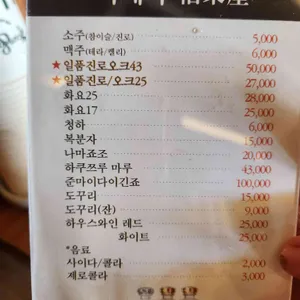 소주(참이슬/진로) 5,000
맥주(테라/켈리) 6,000
★일품진로오크43 50,000
★일품진로/오크25 27,000
화요25 28,000
화요17 25,000
청하 6,000
복분자 15,000
나마죠조 20,000
하쿠쯔루 마루 43,000
준마이다이긴죠 100,000
도꾸리 15,000
도꾸리(잔) 9,000
하우스와인 레드 25,000
화이트 25,000
*음료
사이다/콜라 2,000
제로콜라 3,000